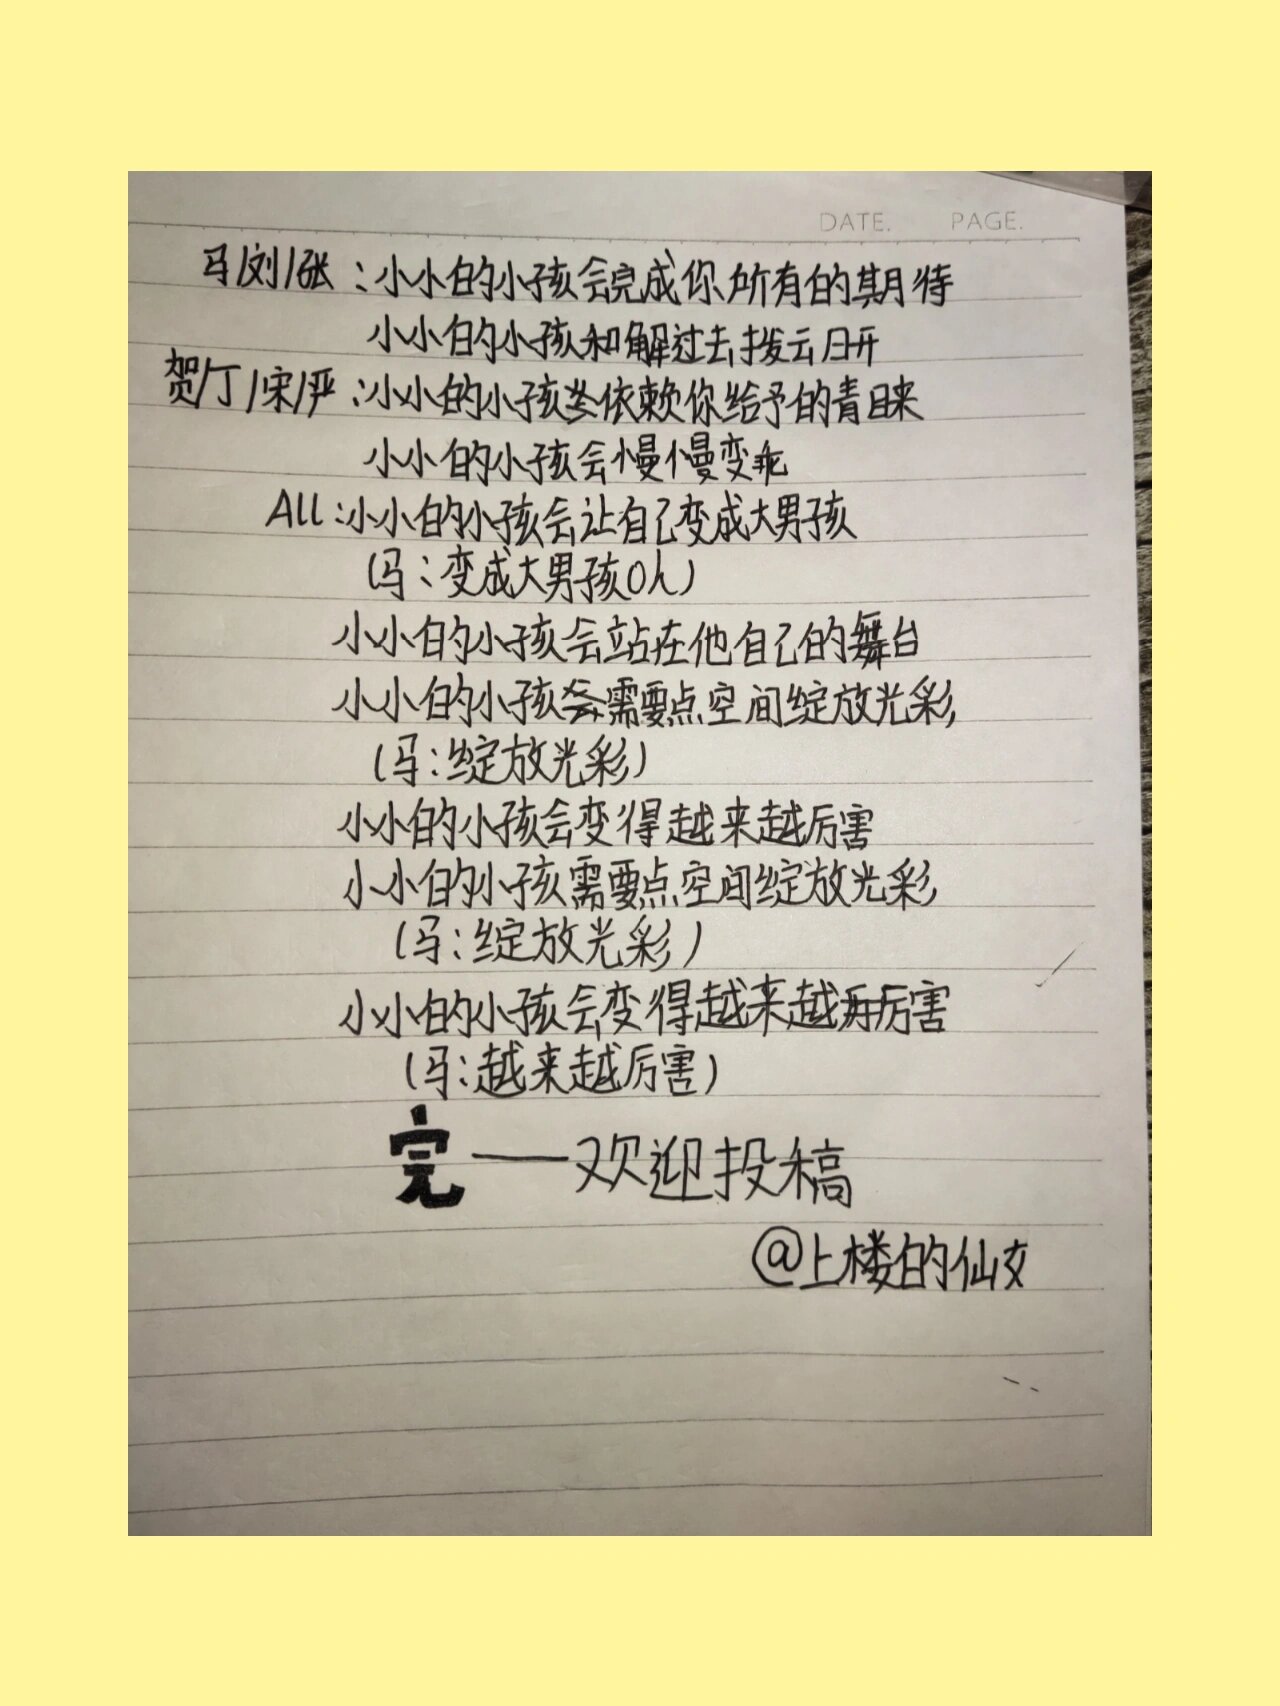 DATE. PAGE.
马/刘/张：小小的小孩会完成你所有的期待
小小的小孩和解过去拨云日开
贺/丁/宋/严：小小的小孩依赖你给予的青睐
小小的小孩会慢慢变乖
All：小小的小孩会让自己变成大男孩
（马：变成大男孩oh）
小小的小孩会站在他自己的舞台
小小的小孩需要点空间绽放光彩
（马：绽放光彩）
小小的小孩会变得越来越厉害
小小的小孩需要点空间绽放光彩
（马：绽放光彩）
小小的小孩会变得越来越厉害
（马：越来越厉害）
完——欢迎投稿
@上楼的仙女